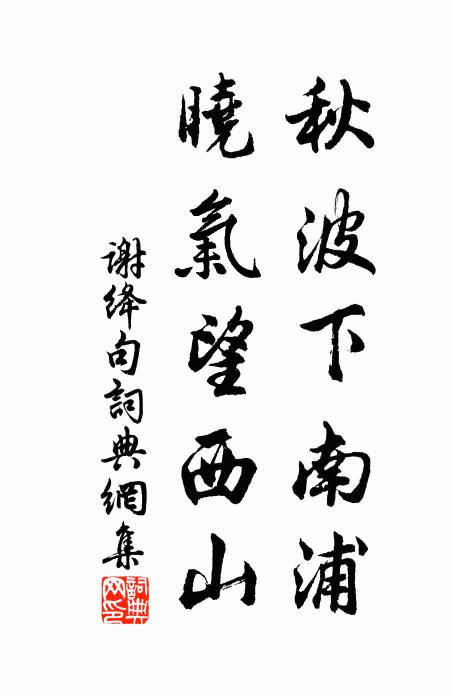 秋波下南浦
曉氣望西山
谢绛句詞典網集
詞典網印